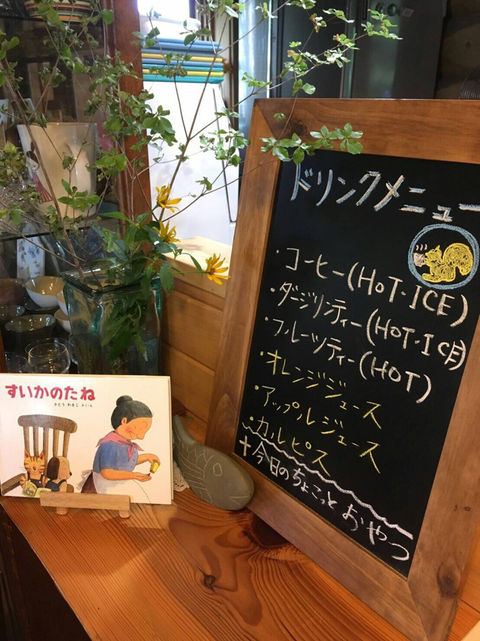 ドリンクメニュー
・コーヒー(HOT・ICE)
・ダージリンティー(HOT・ICE)
・フルーツティー(HOT)
・オレンジジュース
・アップルジュース
・カルピス
+今日のちょこっとおやつ
すいかのたね
さとう わきこ・さく・え